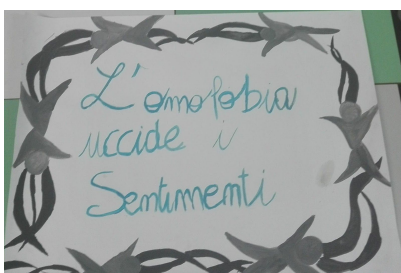 L'omofobia
uccide i
Sentimenti